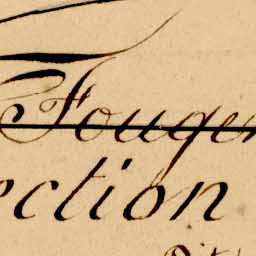 Fouger
ection